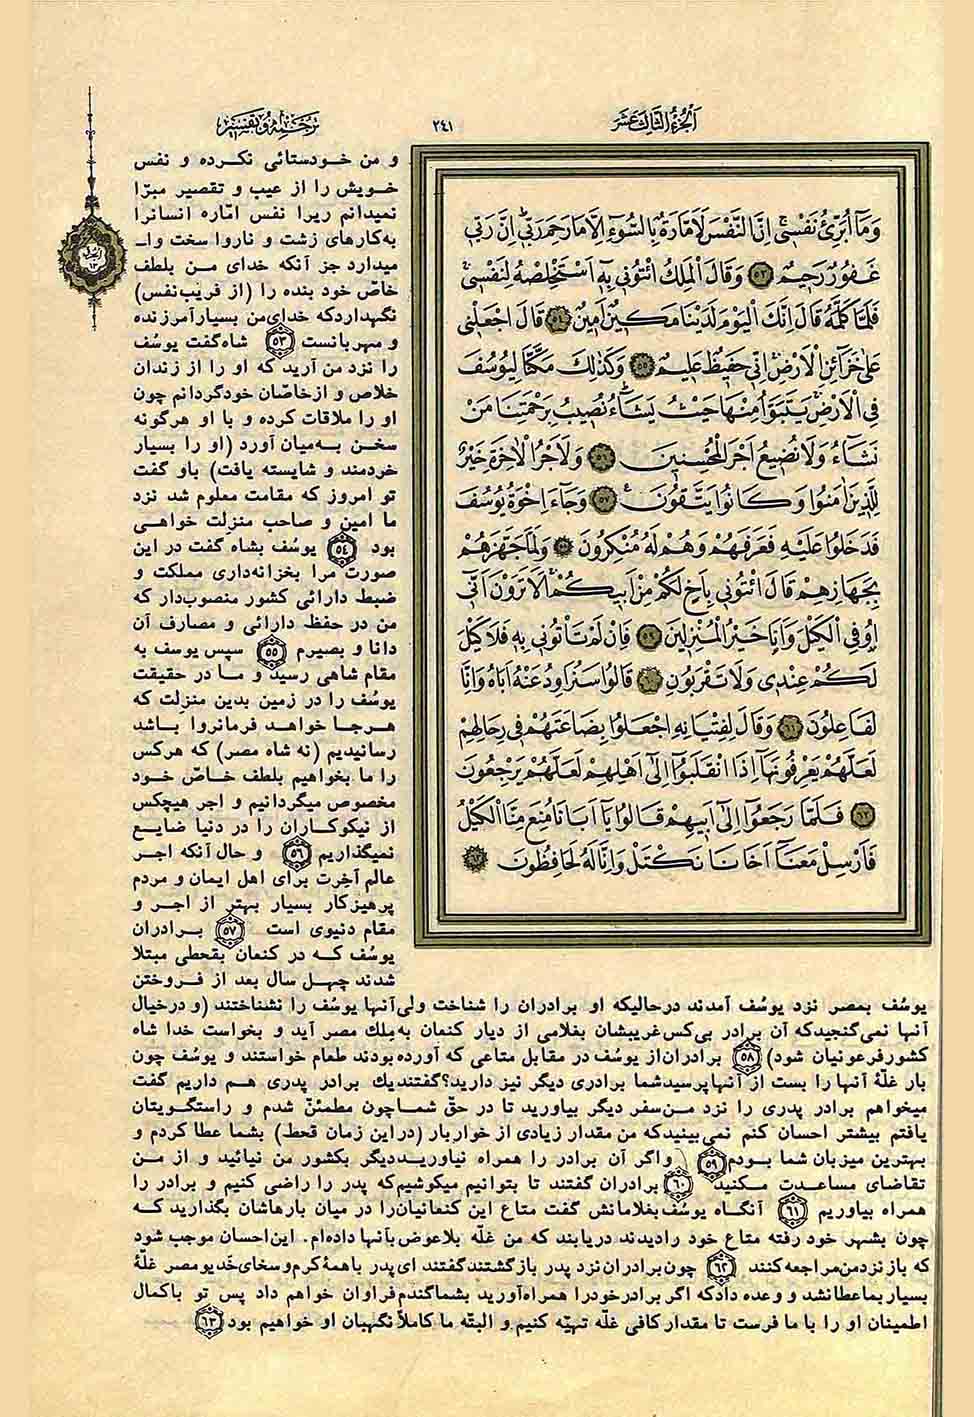 اَلجُزءُ الثّالِثَ عَشَر
٢٤١
ترجمه و تفسیر
وَمَآ اُبَرِّئُ نَفْسىٖ اِنَّ النَّفْسَ لَاَمَّارَةٌ بِالسُّوٓءِ اِلَّا مَا رَحِمَ رَبّىٖ اِنَّ رَبّىٖ
غَفُورٌ رَحيٖمٌ ٥٣ وَقَالَ الْمَلِكُ ائْتُونىٖ بِهٖٓ اَسْتَخْلِصْهُ لِنَفْسىٖ
فَلَمَّا كَلَّمَهُ قَالَ اِنَّكَ الْيَوْمَ لَدَيْنَا مَكيٖنٌ اَميٖنٌ ٥٤ قَالَ اجْعَلْنىٖ
عَلىٰ خَزَآئِنِ الْاَرْضِ اِنّىٖ حَفيٖظٌ عَليٖمٌ ٥٥ وَكَذٰلِكَ مَكَّنَّا لِيُوسُفَ
فِى الْاَرْضِ يَتَبَوَّاُ مِنْهَا حَيْثُ يَشَآءُ نُصيٖبُ بِرَحْمَتِنَا مَنْ
نَشَآءُ وَلَا نُضيٖعُ اَجْرَ الْمُحْسِنيٖنَ ٥٦ وَلَاَجْرُ الْاٰخِرَةِ خَيْرٌ
لِلَّذيٖنَ اٰمَنُوا وَكَانُوا يَتَّقُونَ ٥٧ وَجَآءَ اِخْوَةُ يُوسُفَ
فَدَخَلُوا عَلَيْهِ فَعَرَفَهُمْ وَهُمْ لَهُ مُنْكِرُونَ ٥٨ وَلَمَّا جَهَّزَهُمْ
بِجَهَازِهِمْ قَالَ ائْتُونىٖ بِاَخٍ لَكُمْ مِنْ اَبيٖكُمْ اَلَا تَرَوْنَ اَنّىٖٓ
اُوفِى الْكَيْلَ وَاَنَا خَيْرُ الْمُنْزِليٖنَ ٥٩ فَاِنْ لَمْ تَاْتُونىٖ بِهٖ فَلَا كَيْلَ
لَكُمْ عِنْدىٖ وَلَا تَقْرَبُونِ ٦٠ قَالُوا سَنُرَاوِدُ عَنْهُ اَبَاهُ وَاِنَّا
لَفَاعِلُونَ ٦١ وَقَالَ لِفِتْيَانِهِ اجْعَلُوا بِضَاعَتَهُمْ فىٖ رِحَالِهِمْ
لَعَلَّهُمْ يَعْرِفُونَهَآ اِذَا انْقَلَبُوٓا اِلىٰٓ اَهْلِهِمْ لَعَلَّهُمْ يَرْجِعُونَ
٦٢ فَلَمَّا رَجَعُوٓا اِلىٰٓ اَبيٖهِمْ قَالُوا يَآ اَبَانَا مُنِعَ مِنَّا الْكَيْلُ
فَاَرْسِلْ مَعَنَآ اَخَانَا نَكْتَلْ وَاِنَّا لَهُ لَحَافِظُونَ ٦٣
و من خودستائی نکرده و نفس
خویش را از عیب و تقصیر مبرّا
نمیدانم زیرا نفس امّاره انسانرا
به‌کارهای زشت و ناروا سخت وا‌ـ
میدارد جز آنکه خدای من بلطف
خاصّ خود بنده را (از فریب‌نفس)
نگهدارد که خدای‌من بسیارآمرزنده
و مهربانست ٥٣ شاه‌گفت یوسُف
را نزد من آرید که او را از زندان
خلاص و ازخاصّان خودگردانم چون
او را ملاقات کرده و با او هرگونه
سخن به‌میان آورد (او را بسیار
خردمند و شایسته یافت) باو گفت
تو امروز که مقامت معلوم شد نزد
ما امین و صاحب منزلت خواهـی
بود ٥٤ یوسُف بشاه گفت در این
صورت مرا بخزانه‌داری مملکت و
ضبط دارائی کشور منصوب‌دار که
من در حفظ دارائی و مصارف آن
دانا و بصیرم ٥٥ سپس یوسف به
مقام شاهی رسید و ما در حقیقت
یوسُف را در زمین بدین منزلت که
هرجا خواهـد فرمانروا باشد
رسانیدیم (نه شاه مصر) که هرکس
را ما بخواهیم بلطف خاصّ خود
مخصوص میگردانیم و اجر هیچکس
از نیکوکاران را در دنیا ضایع
نمیگذاریم ٥٦ و حال آنکه اجر
عالم آخرت برای اهل ایمان و مردم
پرهیزکار بسیار بهتر از اجر و
مقام دنیوی است ٥٧ برادران
یوسُف که در کنعان بقحطی مبتلا
شدند چهل سال بعد از فروختن
یوسُف بمصر نزد یوسُف آمدند درحالیکه او برادران را شناخت ولی‌آنها یوسُف را نشناختند (و درخیال
آنها نمی‌گنجیدکه آن برادر بی‌کس‌غریبشان بغلامی از دیار کنعان به‌ملك مصر آید و بخواست خدا شاه
کشورفرعونیان شود) ٥٨ برادران‌از یوسُف در مقابل متاعی که آورده‌بودند طعام خواستند و یوسُف چون
بار غلّهٔ آنها را بست از آنهاپرسیدشما برادری دیگر نیز دارید؟گفتندیك برادر پدری هـم داریم گفت
میخواهم برادر پدری را نزد من‌سفر دیگر بیاورید تا در حقّ شماچون مطمئنّ شدم و راستگویتان
یافتم بیشتر احسان کنم نمی‌بینیدکه من مقدار زیادی از خواربار (دراین زمان قحط) بشما عطا کردم و
بهترین میزبان شما بودم ٥٩ واگر آن برادر را همراه نیاوریددیگر بکشور من نیائید و از من
تقاضای مساعدت مکنید ٦٠ برادران گفتند تا بتوانیم میکوشیم‌که پدر را راضی کنیم و برادر را
همراه بیاوریم ٦١ آنگاه یوسُف‌بغلامانش گفت متاع این کنعانیان‌را در میان بارهاشان بگذارید که
چون بشهر خود رفته متاع خود رادیدند دریابند که من غلّه بلاعوض‌بآنها داده‌ام. این‌احسان موجب شود
که باز نزدمن‌مراجعه‌کنند ٦٢ چون‌برادران نزد پدر بازگشتند گفتند ای‌پدر باهمهٔ کرم‌و سخای‌خدیو مصر غلّهٔ
بسیار بماعطانشد و وعده دادکه اگر برادرخودرا همراه‌آورید بشماگندم‌فراوان خواهم داد پس تو باکمال
اطمینان او را با ما فرست تا مقدار کافی غلّه تهیّه کنیم و البتّه ما کاملاً نگهبان او خواهیم بود ٦٣